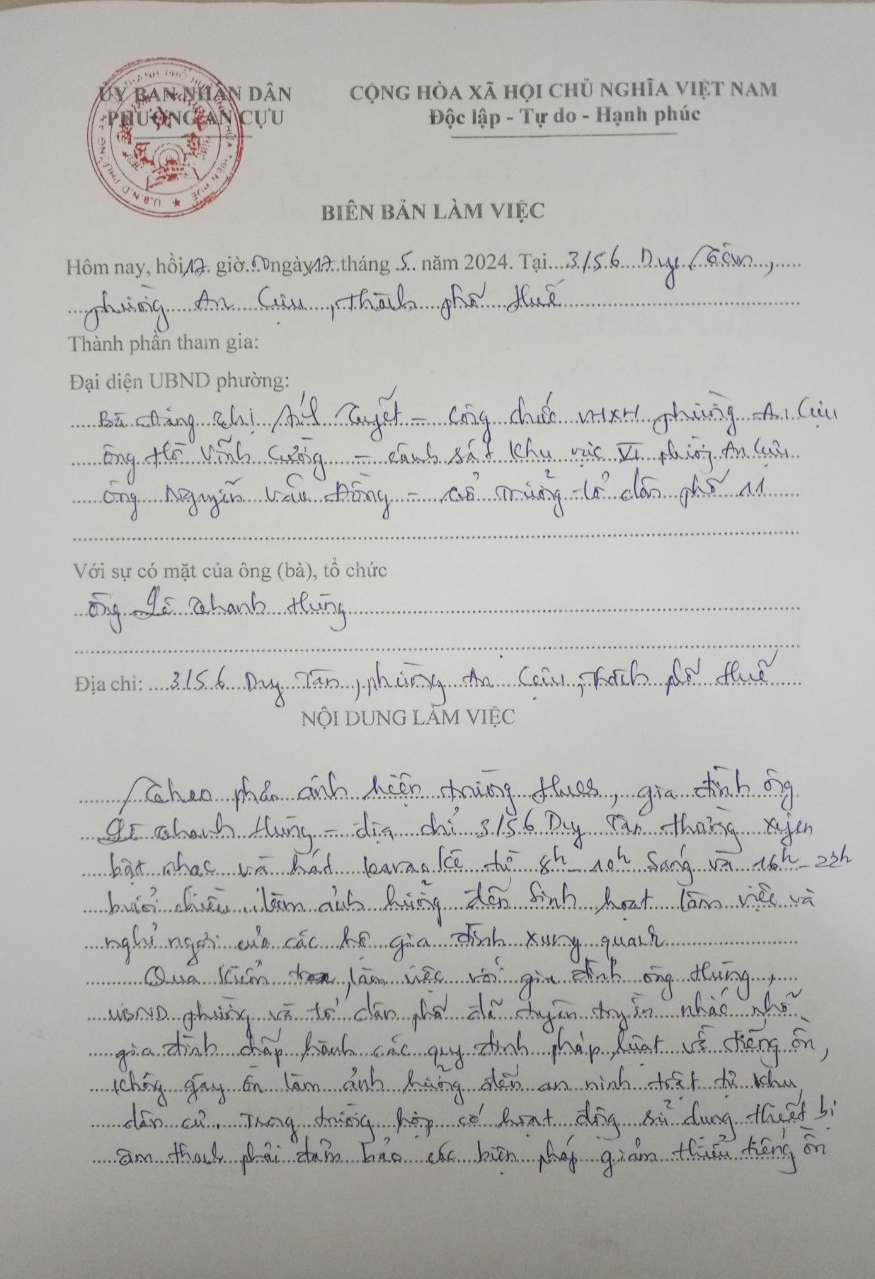 ỦY BAN NHÂN DÂN
PHƯỜNG AN CỰU
CỘNG HÒA XÃ HỘI CHỦ NGHĨA VIỆT NAM
Độc lập - Tự do - Hạnh phúc
BIÊN BẢN LÀM VIỆC
Hôm nay, hồi 17 giờ 00 ngày 17 tháng 5 năm 2024. Tại 3/56 Duy Tân,
phường An Cựu, thành phố Huế
Thành phần tham gia:
Đại diện UBND phường:
Bà Đặng Thị Tuyết - công chức VHXH phường An Cựu
ông Hồ Vĩnh Cường - cảnh sát khu vực VI phường An Cựu
ông Nguyễn Văn Đồng - tổ trưởng tổ dân phố 11
Với sự có mặt của ông (bà), tổ chức
ông Lê Thanh Hùng
Địa chỉ: 3/56 Duy Tân, phường An Cựu, thành phố Huế
NỘI DUNG LÀM VIỆC
Theo phản ánh hiện trường HueS, gia đình ông
Lê Thanh Hùng - địa chỉ 3/56 Duy Tân thường xuyên
bật nhạc và hát karaokê từ 8h-10h sáng và 16h-22h
buổi chiều làm ảnh hưởng đến sinh hoạt làm việc và
nghỉ ngơi của các hộ gia đình xung quanh
Qua kiểm tra, làm việc với gia đình ông Hùng,
UBND phường và tổ dân phố đã tuyên truyền nhắc nhở
gia đình chấp hành các quy định pháp luật về tiếng ồn,
không gây ồn làm ảnh hưởng đến an ninh trật tự khu
dân cư. Trong trường hợp có hoạt động sử dụng thiết bị
âm thanh phải đảm bảo các biện pháp giảm thiểu tiếng ồn